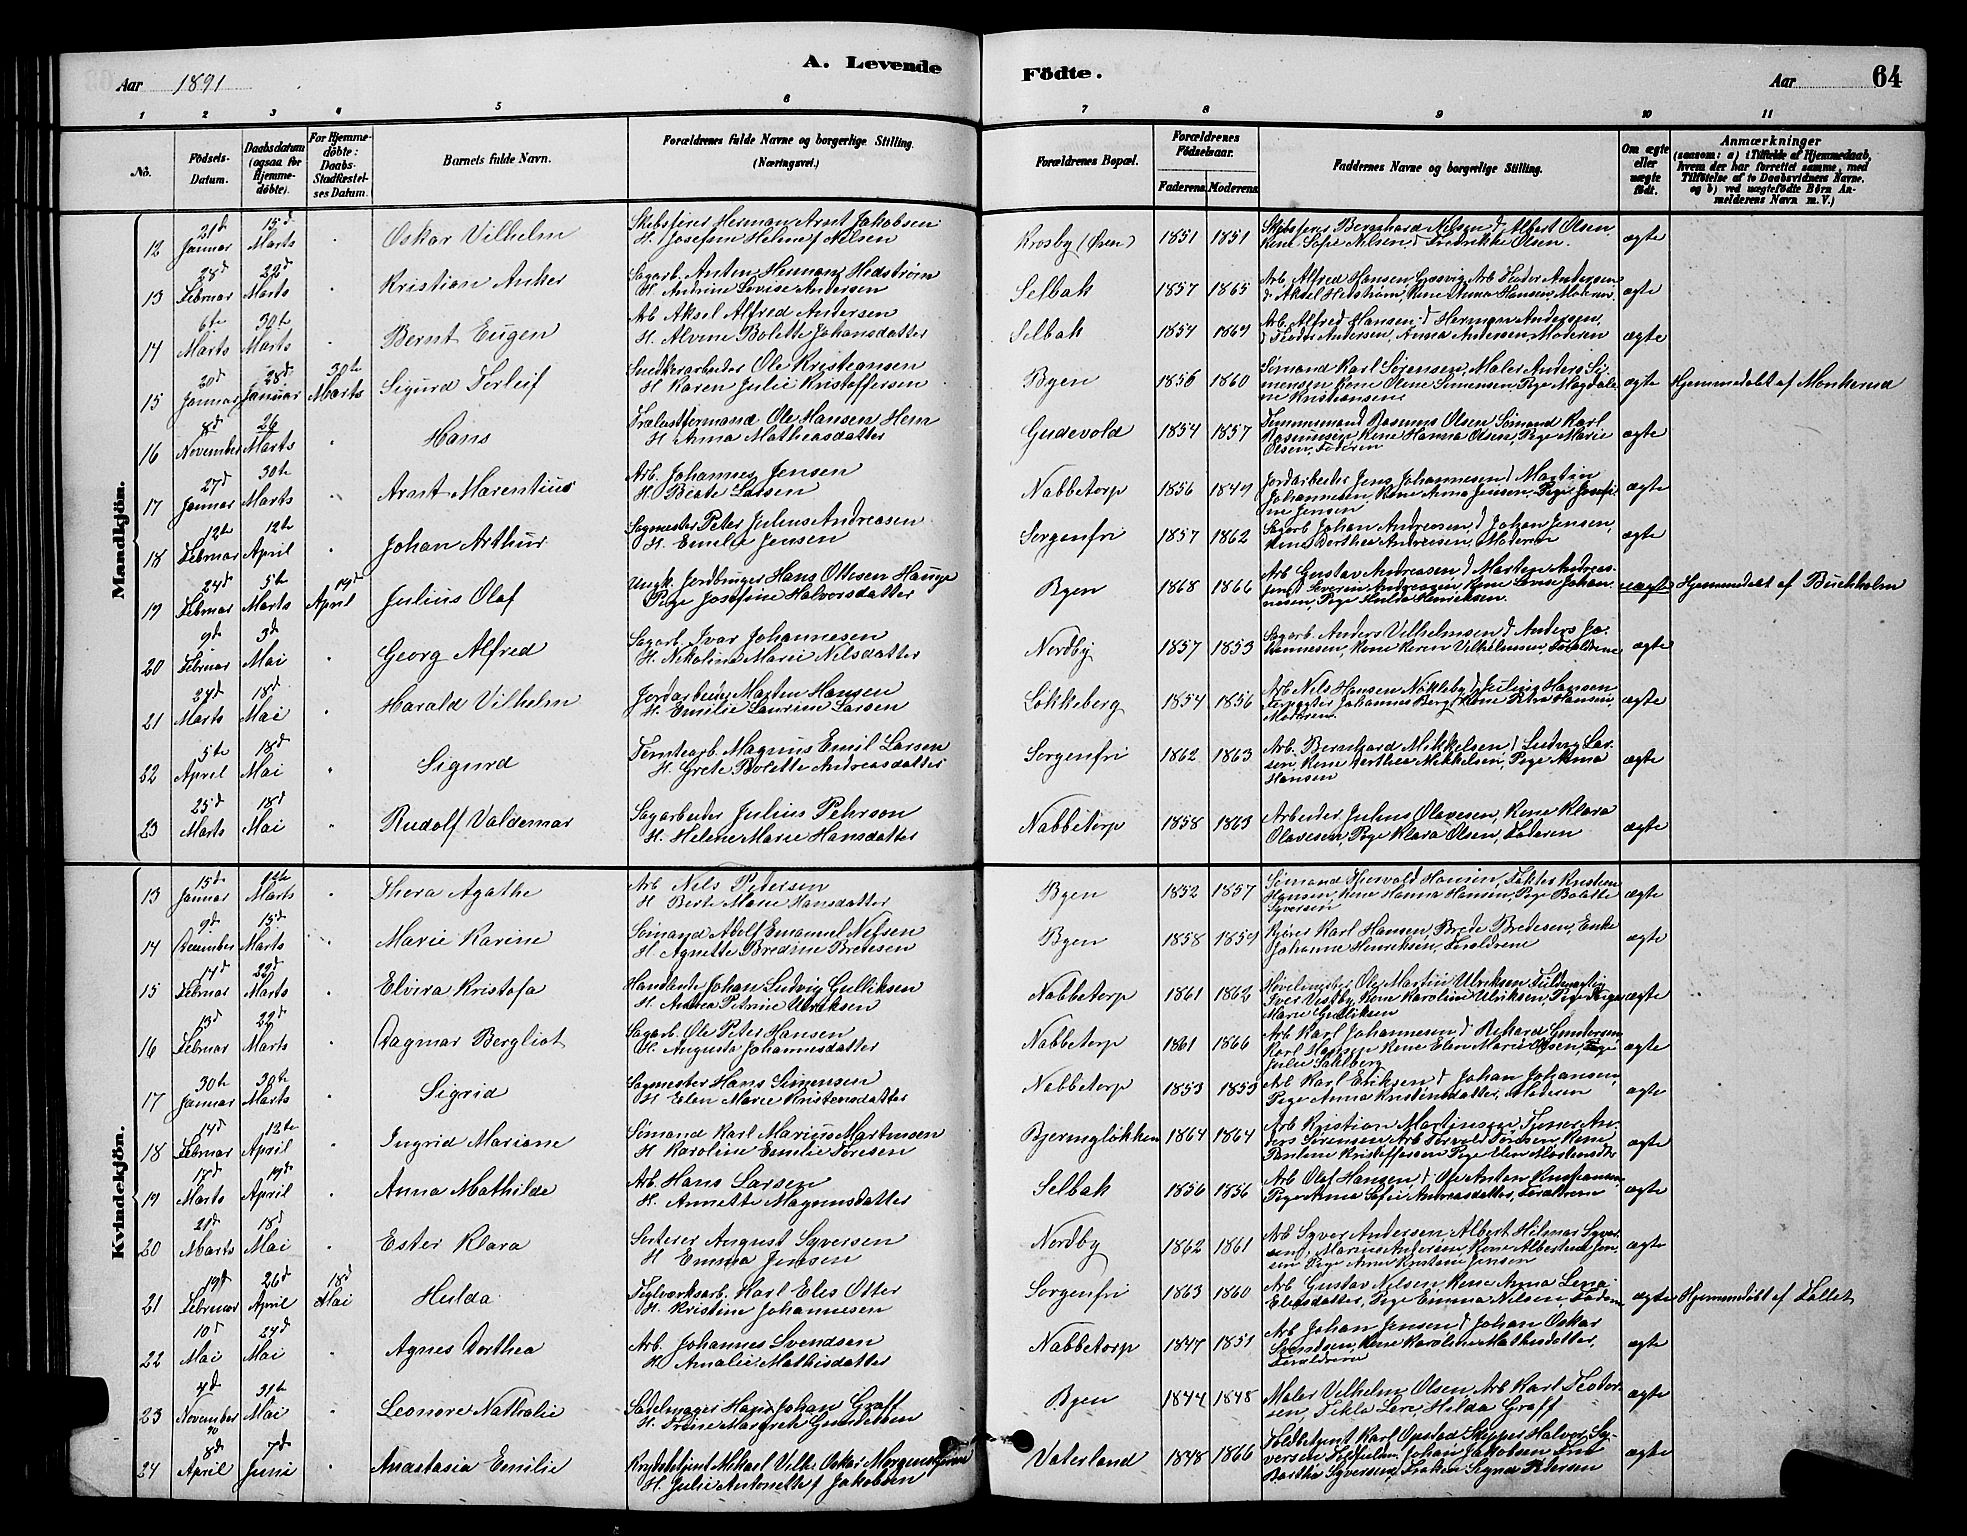 Aar 1891
A. Levende
Födte.
Aar
64
1 2 3 4 5 6 7 8 9 10 11
No.
Födsels-Datum.
Daabsdatum (ogsaa for Hjemmedöbte).
For Hjemmedöbte: Daabs-Stadfæstelses Datum.
Barnets fulde Navn.
Forældrenes fulde Navne og borgerlige Stilling. (Næringsvei.)
Forældrenes Bopæl.
Forældrenes Födselsaar.
Faderens. Moderens.
Faddernes Navne og borgerlige Stilling.
Om ægte eller uægte födt.
Anmærkninger
(saasom: a) i Tilfælde af Hjemmedaab, hvem der har forrettet samme, med Tilföielse af to Daabsvidners Navne, og b) ved uægtefödte Börn Anmelderens Navn m. V.)
Mandkjön.
12 21d Januar 15d Marts " Oskar Vilhelm Skibsfører Herman Arnt Jakobsen H. Josefine Helene Nilsen Krosby (Øren) 1851 1851 Skibsfører Bernhard Nilsen, d Albert Olsen, Kone Sofie Nilsen, d Fredrikke Olsen. ægte
13 28d Februar 22d Marts " Kristian Anker Sagarb. Anten Herman Hedstrøm H. Andrine Lovise Andersen Selbak 1857 1865 Arb. Alfred Hansen, Arb. Teodor Andersen d Aksel Hedstrøm, Kone Anna Hansen, Moderen ægte
14 6te Marts 30te Marts " Bernt Eugen Arb. Aksel Alfred Andersen H. Alvine Bolette Johansdatter Selbak 1854 1864 Arb. Alfred Hansen, d Herman Andersen, d Teodor Andersen, Anna Andersen, Moderen ægte
15 20d Januar 28d Januar 30te Marts Sigurd Torleif Snedkerarbeider Ole Kristiansen H. Karen Julie Kristoffersen Byen 1856 1860 Sømand Karl Sørensen, Maler Anders Simensen, Kone Oline Simensen, Pige Magdalene Kristiansen ægte Hjemmedøbt af Monkerud
16 8d November 26 Marts " Hans Trælastformand Ole Hansen Hem H. Anna Matheasdatter Gudevold 1854 1857 Tømmermand Rasmus Olsen, Sømand Karl Rasmussen, Kone Hanna Olsen, Pige Marie Olsen, Faderen ægte
17 27d Januar 30te Marts " Arnt Marentius Arb. Johannes Jensen H. Beate Larsen Nabbetorp 1856 1849 Jordarbeider Jens Johannesen, d Martin Johannesen, Kone Anna Jensen, Pige Josefine Jensen ægte
18 12te Februar 12te April " Johan Arthur Sagmester Peter Julius Andreasen H. Emelie Jensen Sorgenfri 1857 1862 Sagarb. Johan Andreasen, d Johan Jensen, Kone Dorthea Andreasen, Moderen ægte
19 24d Februar 5te Marts 19d April Julius Olaf Ungk. Jordbruger Hans Ottesen Hauge Pige Josefine Halvorsdatter Byen 1868 1866 Arb. Gustav Andreasen, d Morten Andreasen, d Severin Andreasen, Kone Lovise Johannesen, Pige Hulda Henriksen. uægte Hjemmedøbt af Buckholm
20 9d Februar 3d Mai Georg Alfred Sagarb. Ivar Johannesen H. Nikoline Marie Nilsdatter Nordby 1857 1853 Sagarb. Anders Vilhelmsen, d Anders Johannesen, Kone Karen Vilhelmsen, Forældrene ægte
21 24d Marts 18d Mai " Harald Vilhelm Jordarbeider Morten Hansen H. Emilie Laurine Larsen Løkkeberg 1854 1856 Arb. Nils Hansen Nøkleby, d Julius Hansen, Johannes Berg, Kone Petra Hansen, Moderen. ægte
22 5te April 18d Mai " Sigurd Tomtearb. Magnus Emil Larsen H. Grete Bolette Andreasdatter Sorgenfri 1862 1863 Arb. Bernhard Mikkelsen, d Ludvig Larsen, Kone Dorthea Mikkelsen, Pige Anna Hansen ægte
23 25d Marts 18d Mai " Rudolf Valdemar Sagarbeider Julius Pehrson H. Helene Marie Hansdatter Nabbetorp 1858 1863 Arbeider Julius Olavesen, Kone Klara Olavesen, Pige Klara Olsen, Faderen ægte
Kvindekjön.
13 15d Januar Marts " Thora Agathe Arb. Nils Petersen H. Berte Marie Hansdatter Byen 1852 1857 Sømand Thorvald Hansen, Kone Hanna Hansen, Pige Bolette Syversen ægte
14 9d December 15d Marts " Marie Karine Sømand Adolf Emanuel Nilsen H. Agnette Bredine Bredesen Byen 1858 1859 Kjører Karl Hansen, Brede Bredesen, Enke Johanne Henriksen, Forældrene ægte
15 14d Februar 22d Marts " Elvira Kristofa Handlende Johan Ludvig Gulliksen H. Andrea Petrine Ulriksen Nabbetorp 1861 1862 Høvelmester Ole Martin Ulriksen, Iver Vestby, Kone Karoline Ulriksen, Pige Marie Gulliksen ægte
16 13d Februar 22d Marts " Dagmar Bergliot Sagarb. Ole Peter Hansen H. Augusta Johannesdatter Nabbetorp 1861 1866 Arb. Karl Johannesen, d Rikard Gundersen, Karl Hansen, Kone Elen Marie Olsen, Pige Julie Dahlberg ægte
17 30te Januar 30te Marts " Sigrid Sagmester Hans Simensen H. Elen Marie Kristensdatter Nabbetorp 1853 1853 Arb. Karl Eriksen, d Johan Johansen, Pige Anna Kristensdatter, Moderen ægte
18 14d Februar 12te April " Ingrid Mariane Sømand Karl Marius Martinsen H. Karoline Emilie Toresen Bjerringløkken 1864 1864 Arb. Kristian Martinsen, Tjener Anders Sørensen, Arb. Torvald Toresen, Kone Pauline Kristoffersen, Pige Elen Mortensdtr ægte
19 17d Marts 19d April " Anna Mathilde Arb. Hans Larsen H. Annette Magnusdatter Selbak 1856 1856 Arb. Olaf Hansen, d Ole Anton Kristiansen, Pige Anna Sofie Andreasdatter, Forældrene ægte
20 21d Marts 18d Mai " Ester Klara Sorterer August Syversen H. Emma Jensen Nordby 1862 1861 Arb. Syver Andersen, Albert Hilmar Syversen, Marius Andersen, Kone Albertine Jensen, Pige Anne Kristine Jensen ægte
21 19d Februar 26d April 18d Mai Hulda Teglverksarb. Karl Elis Otter H. Kristine Johannesen Sorgenfri 1863 1860 Arb. Gustav Nilsen, Kone Anna Lena Eliasdatter, Pige Emma Nilsen, Faderen ægte Hjemmedøbt af Follet
22 10d Mai 24d Mai " Agnes Dorthea Arb. Johannes Svendsen H. Amalie Mathisdatter Nabbetorp 1847 1851 Arb. Johan Jensen, d Johan Oskar Svendsen, Kone Karoline Mathisdatter, Forældrene ægte
23 4d November 90 31te Mai " Leonore Nathalie Sadelmager Hans Johan Graff H. Trine Margrete Gundersen Byen 1844 1848 Maler Vilhelm Olsen, Arb. Karl Teodorsen, Tekla Lere, Hilda Graff ægte
24 8d April 7d Juni " Anastasia Emilie Krydsbetjent Mikael Vilh. Oskar Morgenstjerne H. Julie Antonette Jakobsen Vaterland 1848 1866 Toldbetjent Karl Opstad, Skipper Halvor Syversen, Johan Jakobsen, Fru Bartha Syversen, Frøken Signa Petersen ægte